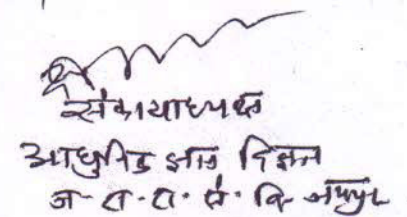 संकायाध्यक्ष
आधुनिक ज्ञान विज्ञान
ज. रा. रा. सं. वि. जयपुर